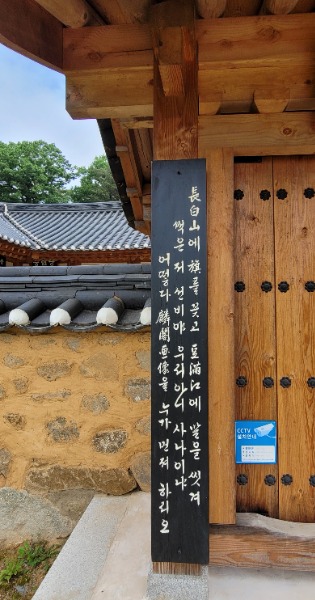 長白山에 旗를 꽂고 豆滿江에 말을 씻겨
썩은 저 선비야 우리 아니 사나이냐
어떻다 麟閣畫像을 누가 먼저 하리오
CCTV
설치안내